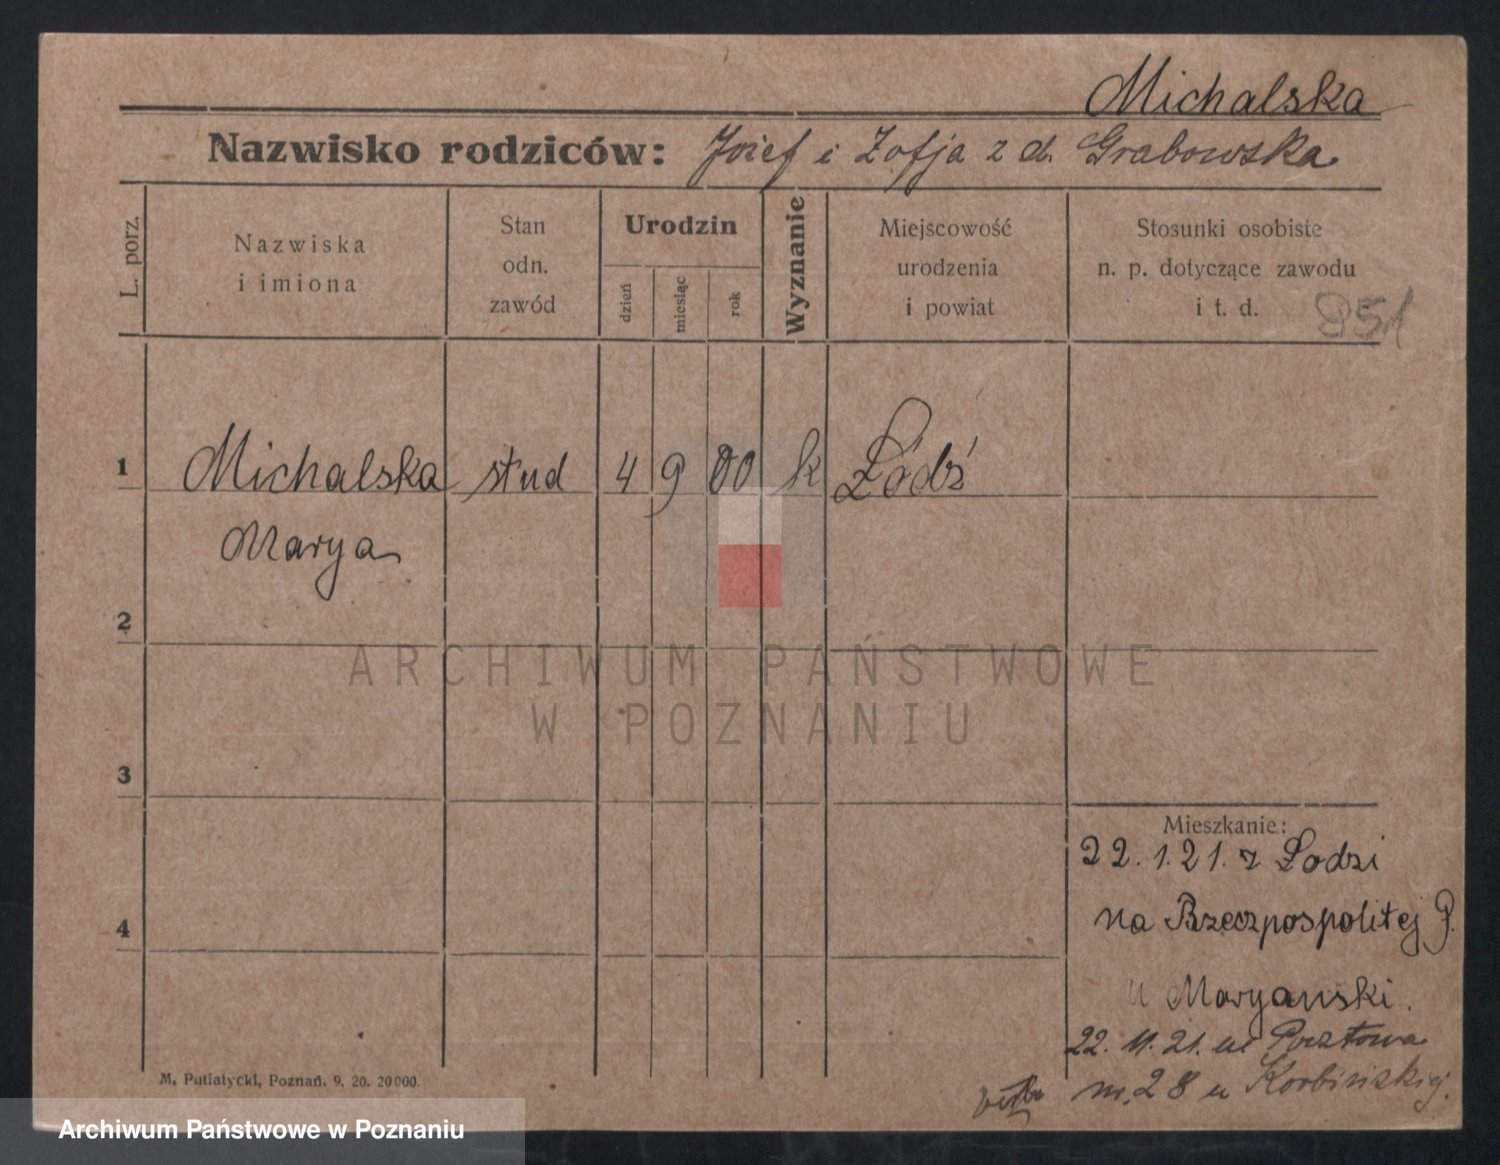 Michalska
Nazwisko rodziców: Józef i Zofja z d. Grabowska
L. porz.
Nazwiska
i imiona
Stan
odn.
zawód
Urodzin
dzień
miesiąc
rok
Wyznanie
Miejscowość
urodzenia
i powiat
Stosunki osobiste
n. p. dotyczące zawodu
i t. d.
951
1 Michalska stud 4 9 00 k Łódź
Marya
2
ARCHIWUM PAŃSTWOWE
W POZNANIU
3
Mieszkanie:
22. 1. 21. z Łodzi
4
na Rzeczpospolitej 9.
u Maryanski.
22. 11. 21. ul Pocztowa
nr. 28 u Korbińskiej.
M. Putiatycki, Poznań. 9. 20. 20000.
Archiwum Państwowe w Poznaniu